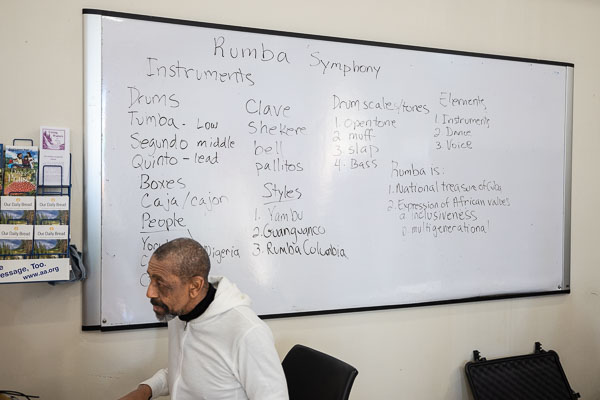 Rumba Symphony
Instruments
Drums
Tumba - Low
Segundo middle
Quinto - lead
Boxes
Caja/cajon
People
Nigeria
Clave
Shekere
bell
pallitos
Styles
1. Yambu
2. Guanguanco
3. Rumba Columbia
Drum scales/tones
1. Open tone
2. muff
3. slap
4. Bass
Elements
1. Instruments
2. Dance
3. Voice
Rumba is:
1. National treasure of Cuba
2. Expression of African values
a. inclusiveness
b. multigenerational
Our Daily Bread
Our Daily Bread
Our Daily Bread
Our Daily Bread
essage, Too.
www.aa.org